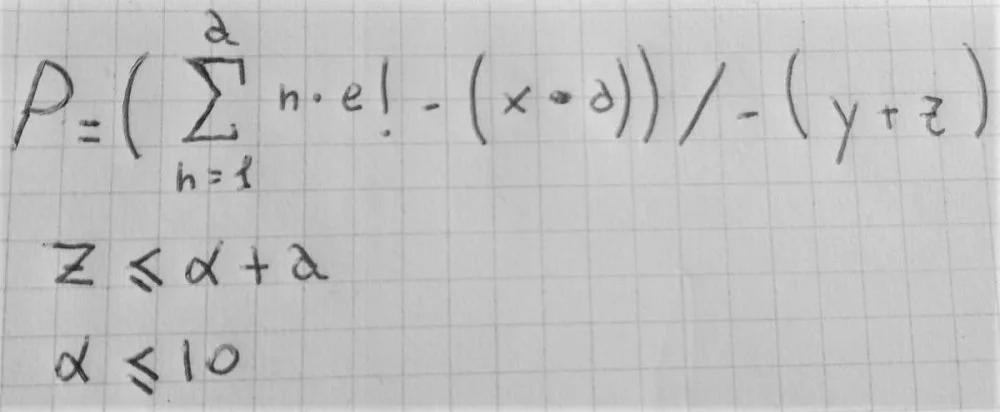 P = ( ∑_{n=1}^{a} n · e! - (x • a)) / - (y + z)
z ≤ α + a
α ≤ 10